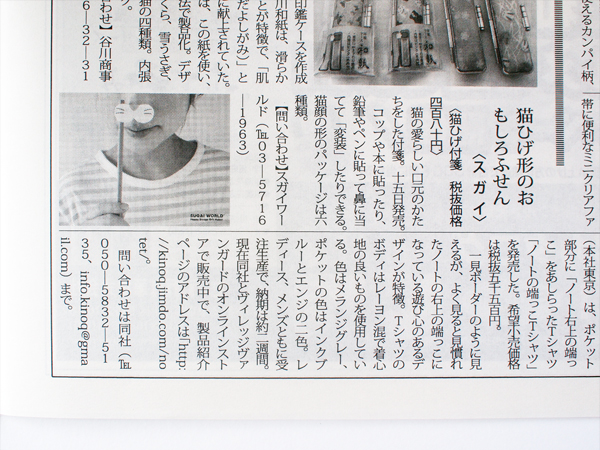 えるカンパイ柄、
帯に便利なミニクリアファ
猫ひげ形のお
もしろふせん
〈スガイ〉
〈猫ひげ付箋　税抜価格
四百八十円〉
猫の愛らしい口元のかた
ちをした付箋。十五日発売。
コップや本に貼ったり、
鉛筆やペンに貼って鼻に当
てて「変装」したりできる。
猫顔の形のパッケージは六
種類。
【問い合わせ】スガイワー
ルド（℡03―5716
―1963）
SUGAI WORLD
印鑑ケースを作成
川和紙は、滑らか
とが特徴で、「肌
だよしがみ）」と
に献上されていた。
は、この紙を使い、
法で製品化。デザ
くら、雪うさぎ、
猫の四種類。内張
わせ】谷川商事
6―32―31
（本社東京）は、ポケット
部分に「ノート右上の端っ
こ」をあしらったTシャツ
「ノートの端っこTシャツ」
を発売した。希望小売価格
は税抜五千五百円。
一見ボーダーのように見
えるが、よく見ると見慣れ
たノートの右上の端っこに
なっている遊び心のあるデ
ザインが特徴。Tシャツの
ボディはレーヨン混で着心
地の良いものを使用してい
る。色はメランジグレー、
ポケットの色はインクブ
ルーとエンジの二色。レ
ディース、メンズともに受
注生産で、納期は約二週間。
現在同社とヴィレッジヴァ
ンガードのオンラインスト
アで販売中で、製品紹介
ページのアドレスは「http:
//kinoq.jimdo.com/no
tet/」。
問い合わせは同社（℡
050-5832-51
35、info.kinoq@gma
il.com）まで。